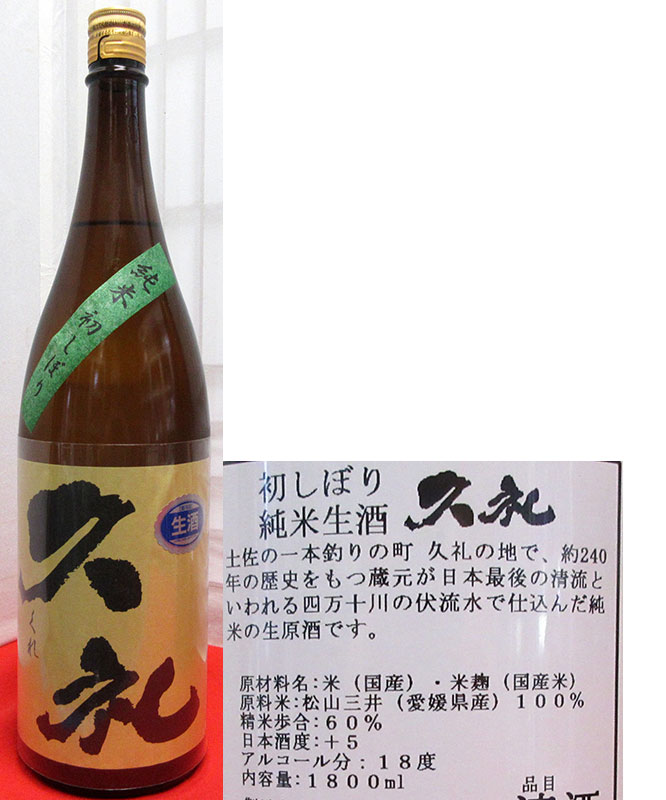 純米 初しぼり
生酒
久礼
くれ
初しぼり
純米生酒 久礼
土佐の一本釣りの町 久礼の地で、約240
年の歴史をもつ蔵元が日本最後の清流と
いわれる四万十川の伏流水で仕込んだ純
米の生原酒です。
原材料名:米(国産)・米麹(国産米)
原料米:松山三井(愛媛県産)100%
精米歩合:60%
日本酒度:+5
アルコール分:18度
内容量:1800ml
品目